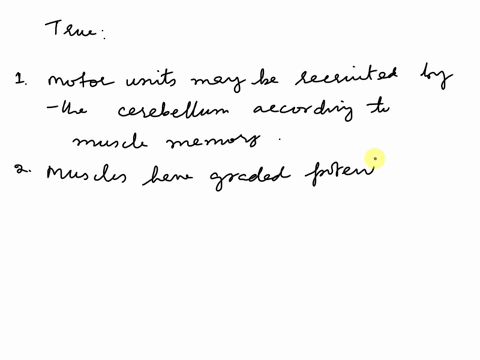 True:
1. motor units may be recruited by
the cerebellum according to
muscle memory.
2. Muscles have graded poten